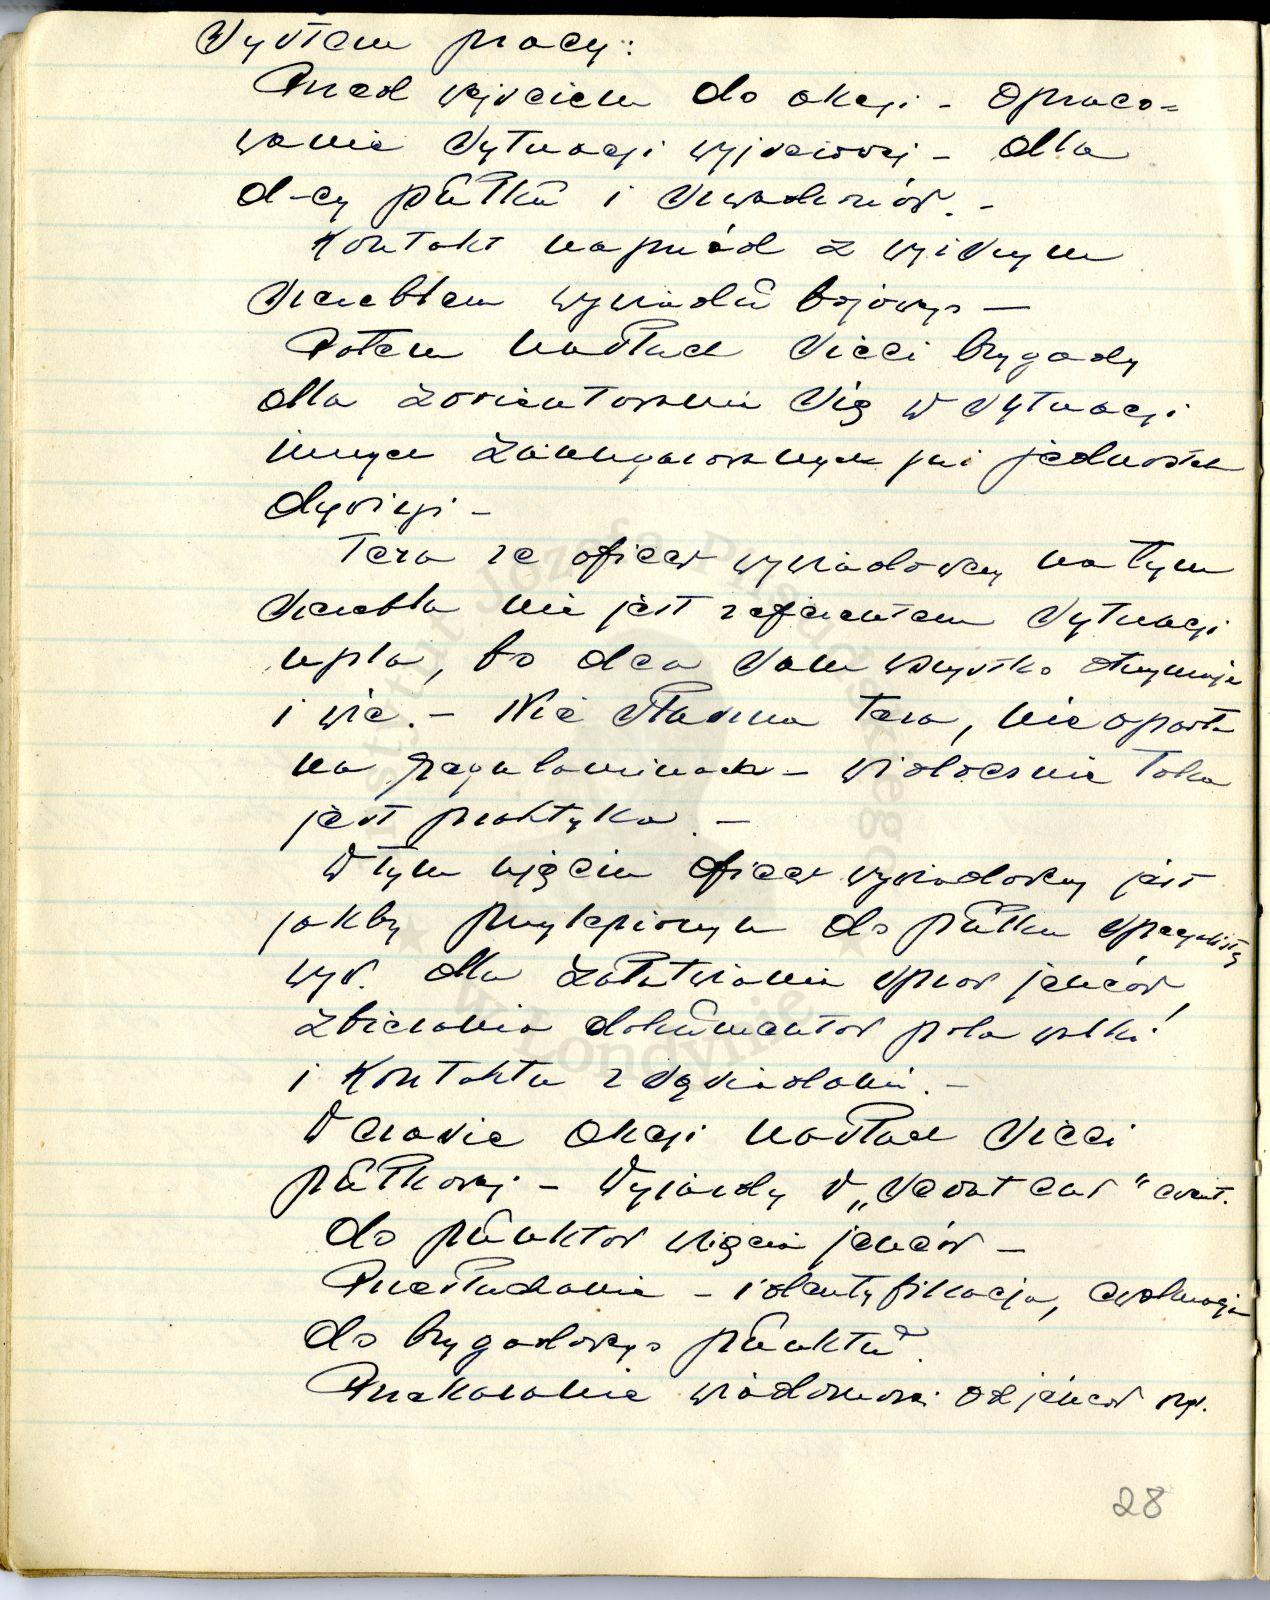 System pracy:
Przed wejściem do akcji - opraco=
wanie sytuacji wyjściowej - dla
d-cy pułku i szwadronów. -
Kontakt naprzód z wyższym
szczeblem wywiadu bojowego -
Potem nasłuch sieci brygady
dla zorientowania się w sytuacji
innych zaangażowanych już jednostek
dywizji -
Teza że oficer wywiadowczy na tym
szczeblu nie jest referentem sytuacji
npla, bo dca sam wszystko otrzymuje
i wie. - Nie słuszna teza, nie oparta
na regulaminach - widocznie taka
jest praktyka. -
W tym ujęciu oficer wywiadowczy jest
jakby przylepionym do pułku specjalistą
wyw. dla załatwiania spraw jeńców,
zbierania dokumentów pola walki
i kontaktu z sąsiadami. -
W czasie akcji nasłuch sieci
pułkowej - Wyjazdy w „scout car" ewent.
do punktów wzięcia jeńców -
Przesłuchanie - identyfikacja, ewakuacja
do brygadowego punktu.
Przekazanie wiadomości od jeńców np.
28
Instytut Józefa Piłsudskiego
w Londynie